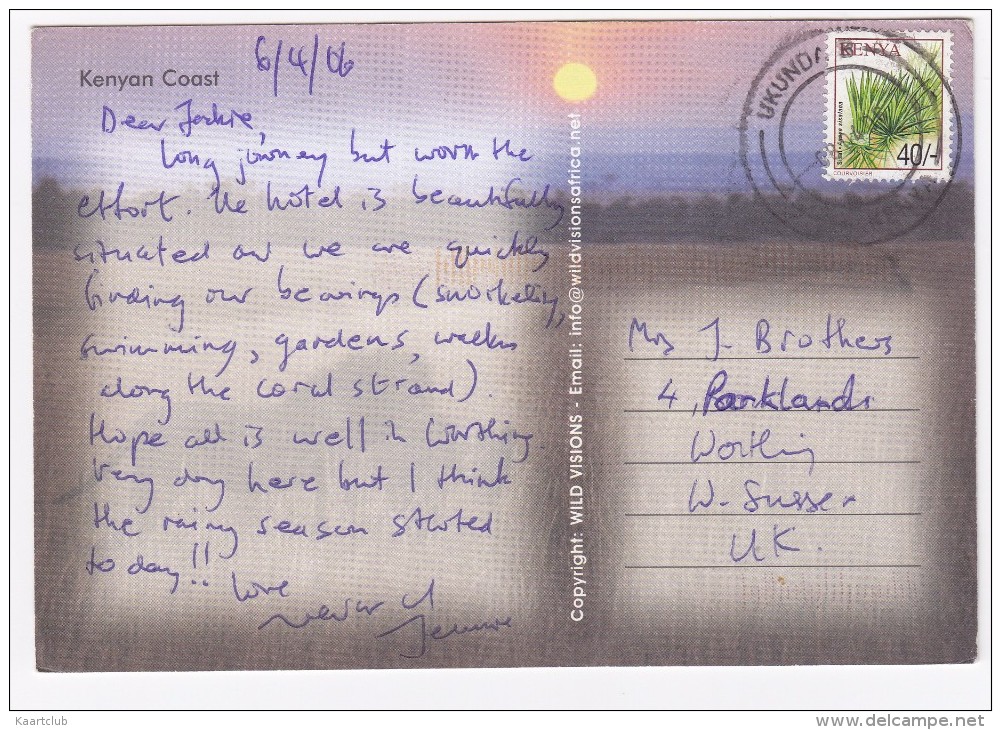 Kenyan Coast
6/4/06
Dear Jackie,
Long journey but worth the
effort. The hotel is beautifully
situated and we are quickly
finding our bearings (snorkeling,
swimming, gardens, walks
along the coral strand).
Hope all is well in Worthing.
Very dry here but I think
the rainy season started
today!!
Love
Copyright: WILD VISIONS - Email: info@wildvisionsafrica.net
UKUNDA
KENYA
40/-
COURVOISIER
Mrs J. Brothers
4, Parklands
Worthing
W. Sussex
UK.
Kaartclub
www.delcampe.net